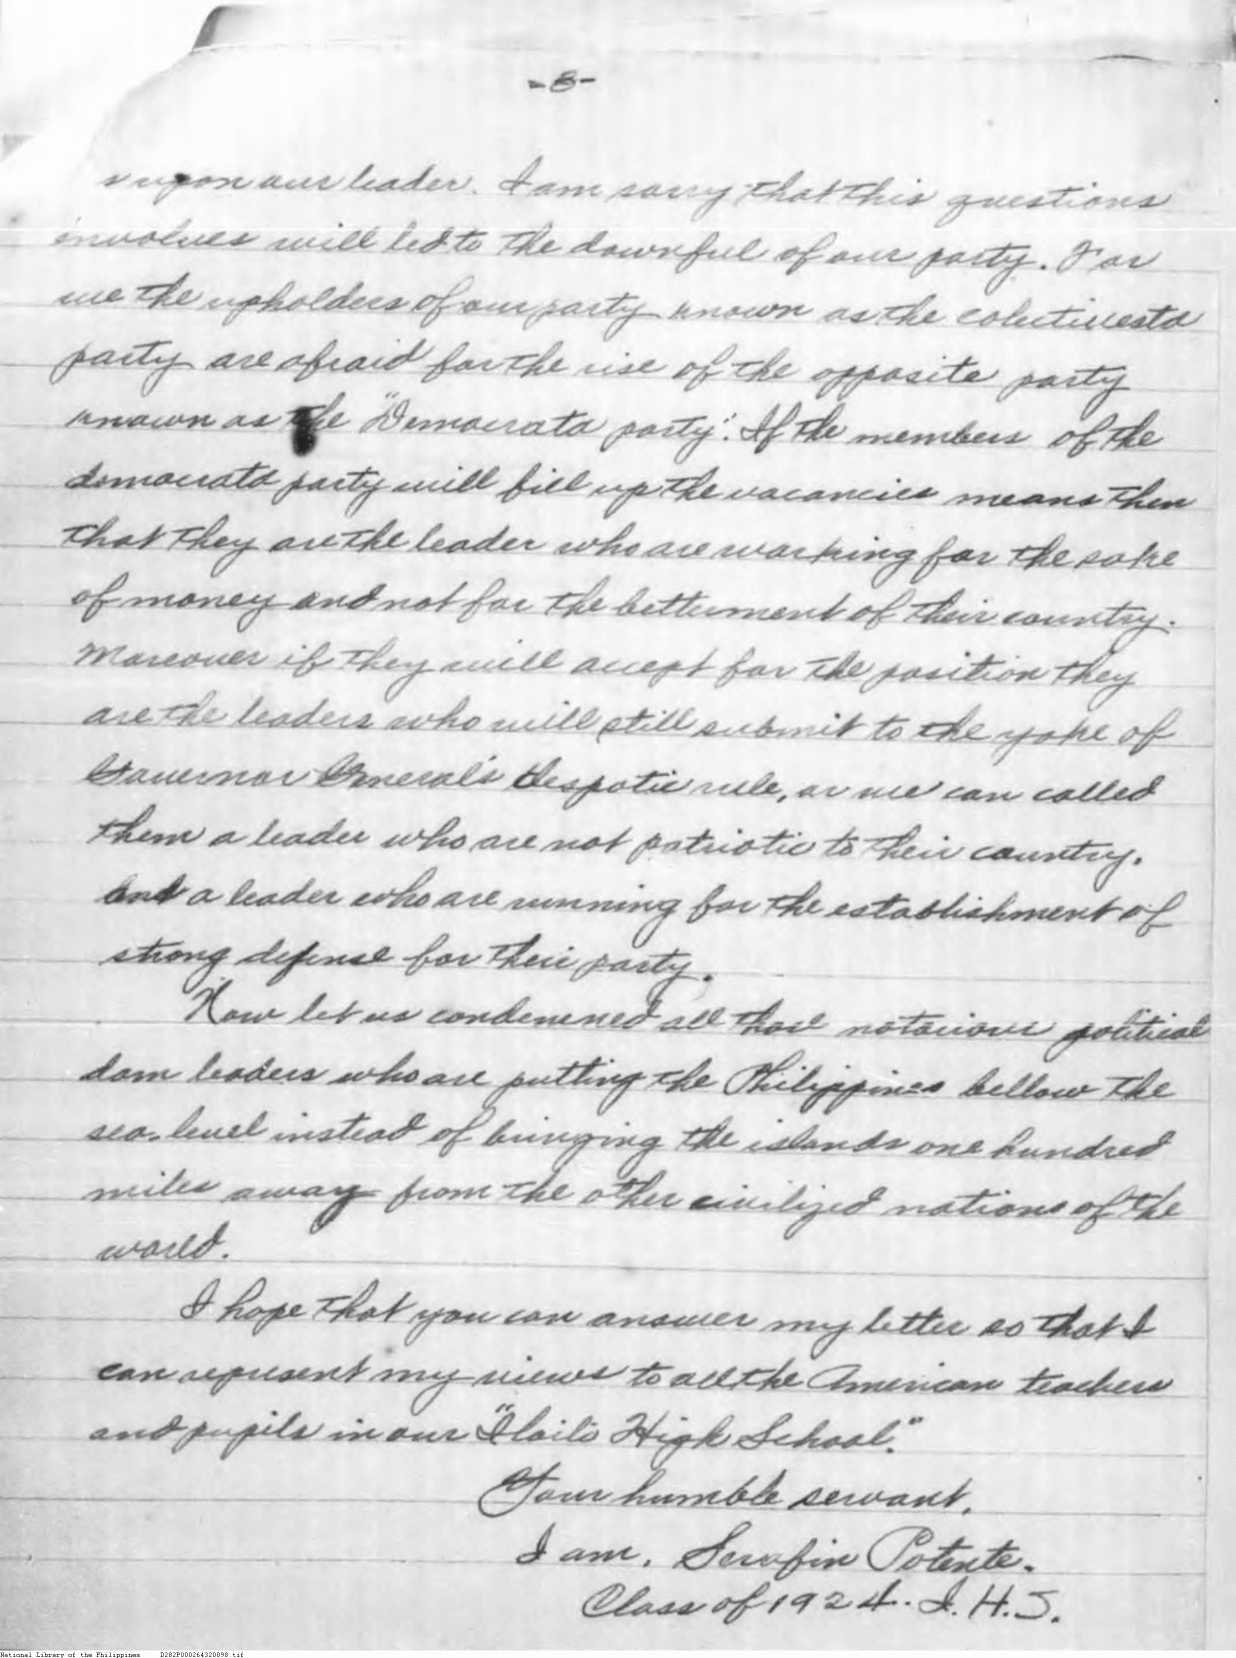 -8-
s upon our leader. I am sorry that this questions
involves will led to the downful of our party. For
we the upholders of our party known as the colectivesta
party are afraid for the rise of the opposite party
known as the "Democrata party". If the members of the
democrata party will fill up the vacancies means then
that they are the leader who are working for the sake
of money and not for the betterment of their country.
Moreover if they will accept for the position they
are the leaders who will still submit to the yoke of
Governor General's despotic rule, or we can called
them a leader who are not patriotic to their country.
and a leader who are running for the establishment of
strong defense for their party.
Now let us condemned all those notorious political
dam leaders who are putting the Philippines bellow the
sea-level instead of bringing the islands one hundred
miles away from the other civilized nations of the
world.
I hope that you can answer my letter so that I
can represent my views to all the American teachers
and pupils in our "Iloilo High School."
Your humble servant,
I am, Serafin Potente.
Class of 1924. I.H.S.
National Library of the Philippines D282P000264320898.tif